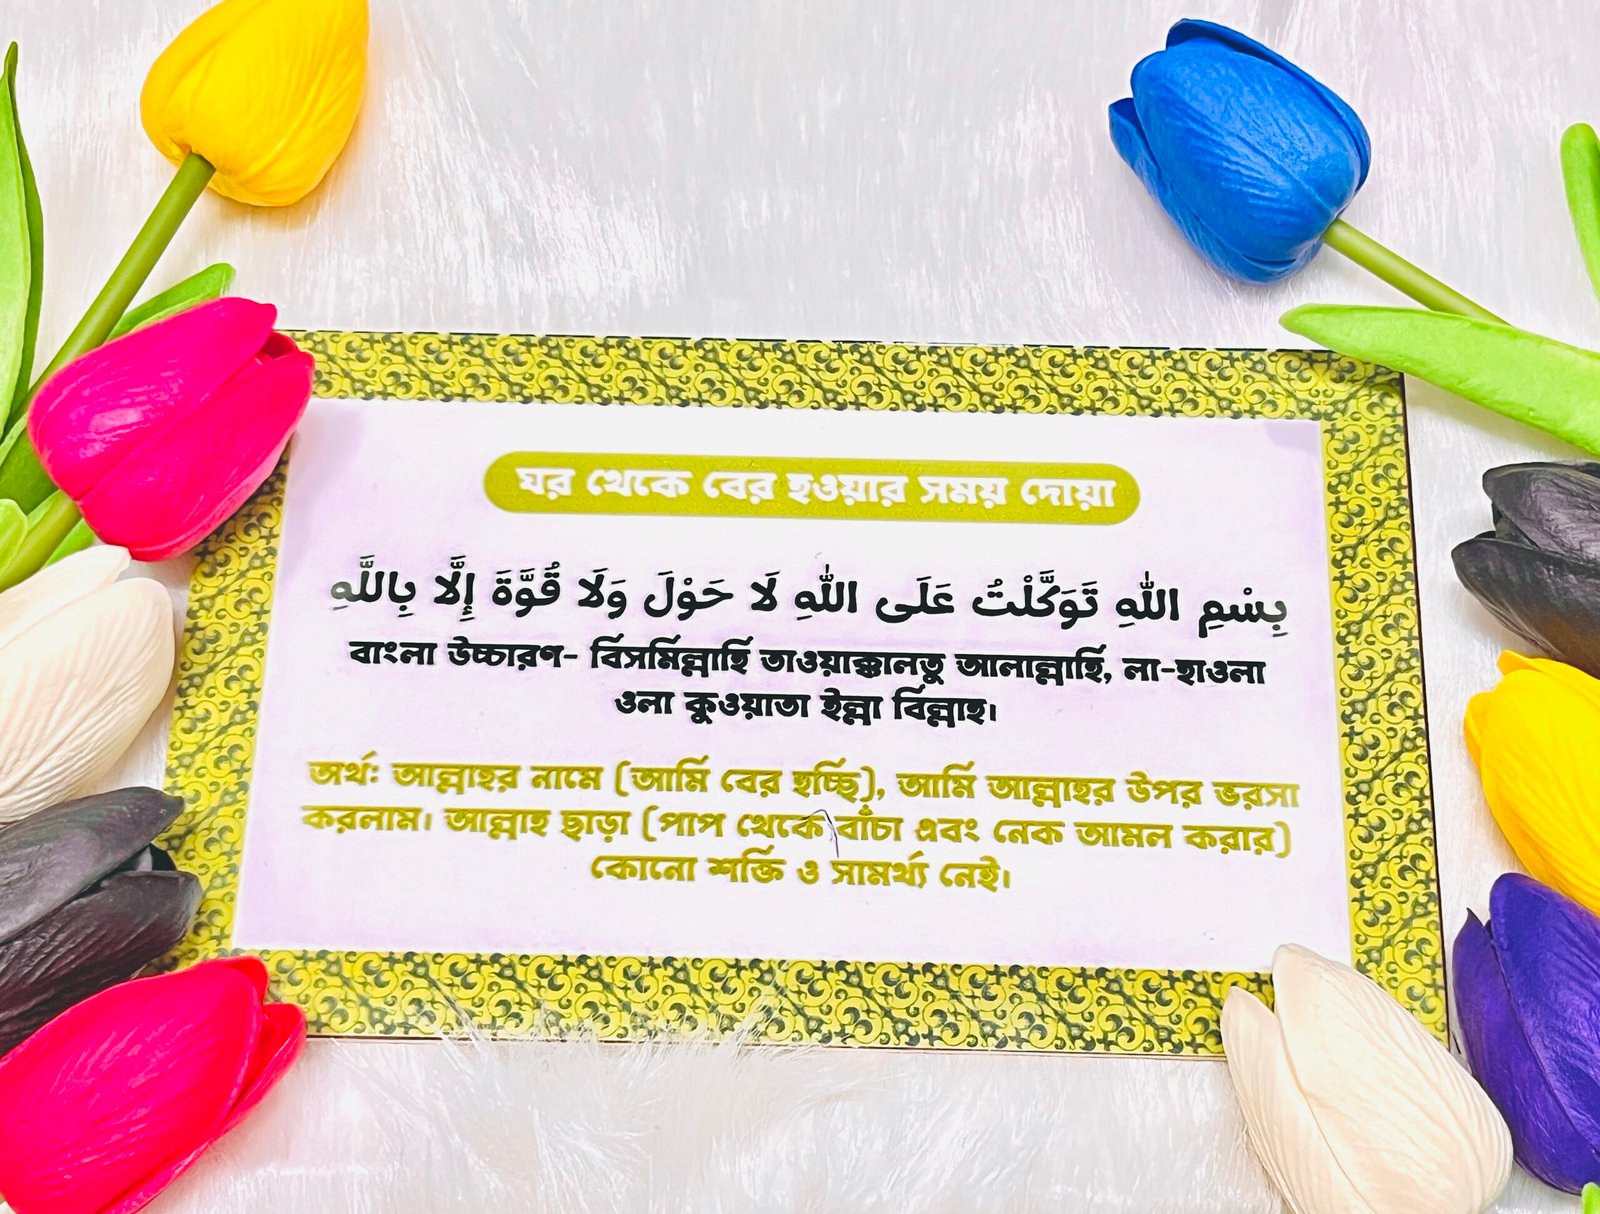 ঘর থেকে বের হওয়ার সময় দোয়া
بِسْمِ اللّٰهِ تَوَكَّلْتُ عَلَى اللّٰهِ لَا حَوْلَ وَلَا قُوَّةَ إِلَّا بِاللَّهِ
বাংলা উচ্চারণ- বিসমিল্লাহি তাওয়াক্কালতু আলাল্লাহি, লা-হাওলা
ওলা কুওয়াতা ইল্লা বিল্লাহ।
অর্থ: আল্লাহর নামে (আমি বের হচ্ছি), আমি আল্লাহর উপর ভরসা
করলাম। আল্লাহ ছাড়া (পাপ থেকে বাঁচা এবং নেক আমল করার)
কোনো শক্তি ও সামর্থ্য নেই।